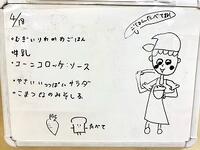 4/18
・むぎいりわかめごはん
・牛乳
・コーンコロッケ・ソース
・やさいいっぱいサラダ
・こまつなのみそしる
たべて